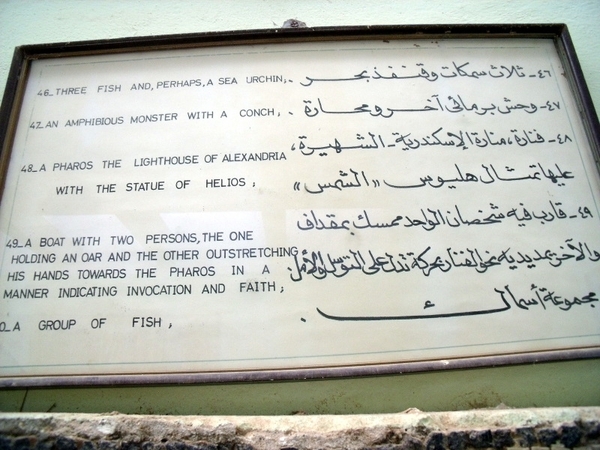 46_ THREE FISH AND, PERHAPS, A SEA URCHIN;
٤٦- ثلاث سمكات وقنفذ بحر .
47_ AN AMPHIBIOUS MONSTER WITH A CONCH;
٤٧- وحش برمائى آخر ومحارة .
48_ A PHAROS THE LIGHTHOUSE OF ALEXANDRIA
WITH THE STATUE OF HELIOS ;
٤٨- فنارة، منارة الإسكندرية - الشهيرة،
عليها تمثال هليوس «الشمس»
49_ A BOAT WITH TWO PERSONS, THE ONE
HOLDING AN OAR AND THE OTHER OUTSTRETCHING
HIS HANDS TOWARDS THE PHAROS IN A
MANNER INDICATING INVOCATION AND FAITH ;
٤٩- قارب فيه شخصان الواحد ممسك بمقداف
والآخر يمد يديه نحو الفنار بحركة تدل على التوسل والأمل
0_ A GROUP OF FISH ,
مجموعة أسماك .